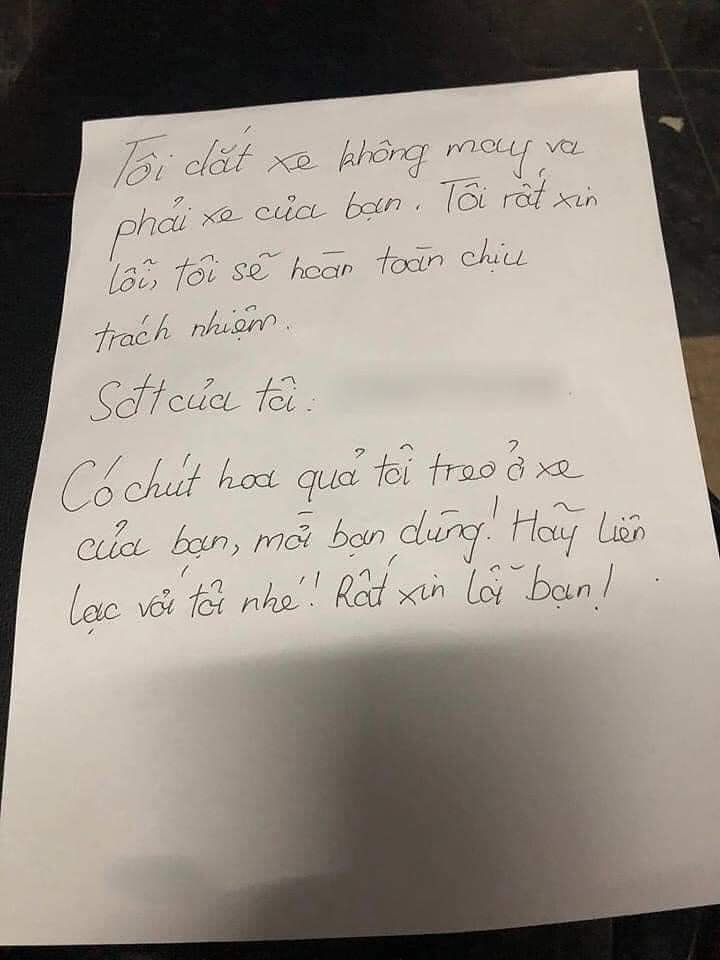 Tôi dắt xe không may va
phải xe của bạn. Tôi rất xin
lỗi, tôi sẽ hoàn toàn chịu
trách nhiệm.
Sđt của tôi:
Có chút hoa quả tôi treo ở xe
của bạn, mời bạn dùng! Hãy liên
lạc với tôi nhé! Rất xin lỗi bạn!